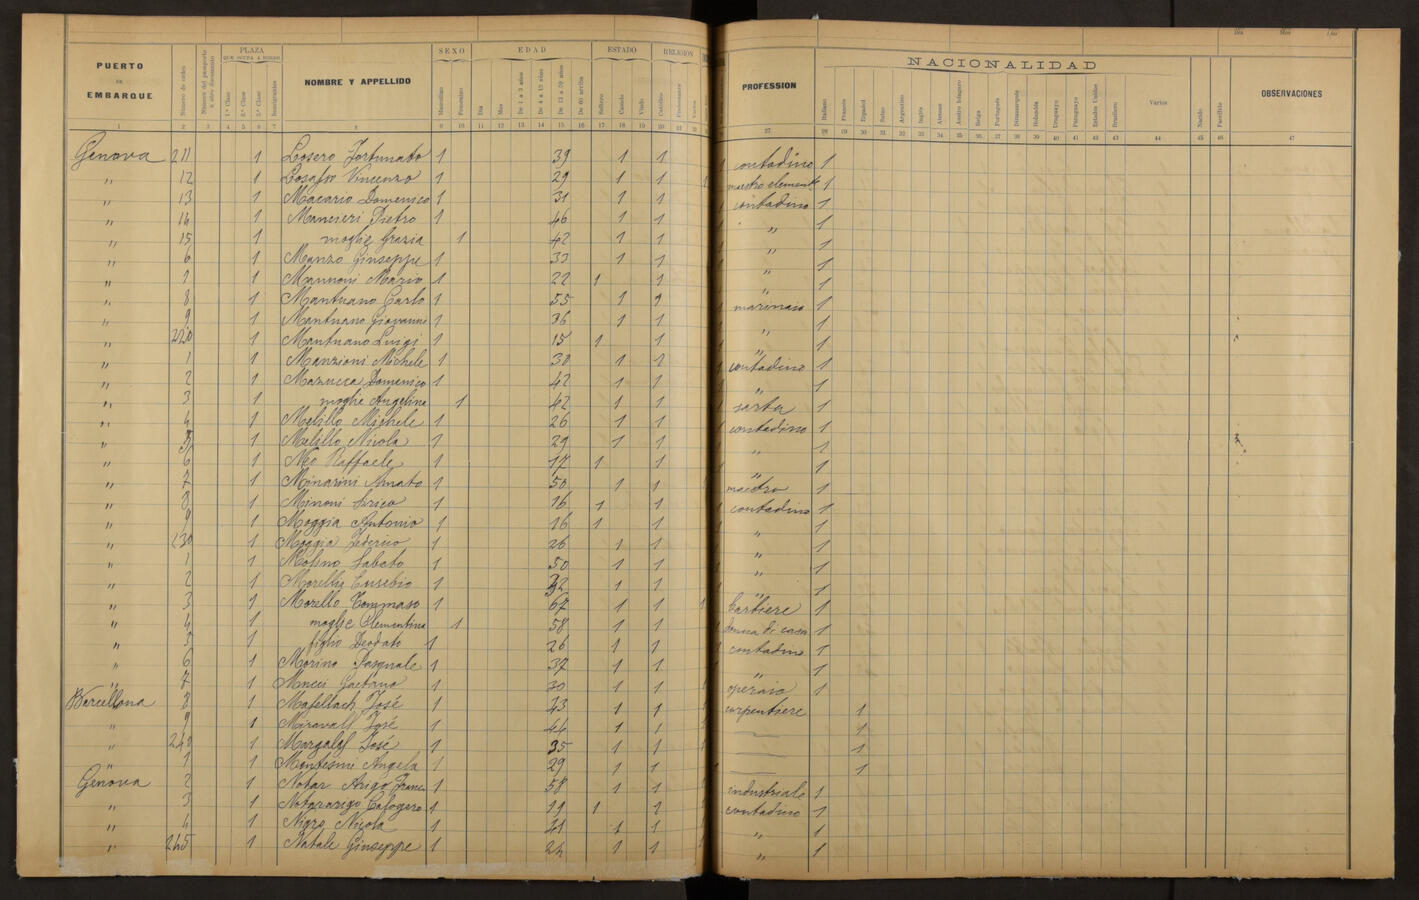 PUERTO DE EMBARQUE
Número de orden
Número del pasaporte ú otro documento
PLAZA QUE OCUPA A BORDO
1.ª Clase 2.ª Clase 3.ª Clase Inmigrantes
NOMBRE Y APPELLIDO
SEXO Masculino Femenino
EDAD Dia Mes De 1 a 3 años De 4 a 12 años De 13 a 59 años De 60 arriba
ESTADO Soltero Casado Viudo
RELIGIÓN Católico
PROFESSION
NACIONALIDAD
Italiano Francés Español Suizo Argentino Inglés Aleman Austro húngaro Belga Portugués Dinamarqués Holandés Uruguayo Paraguayo Estados Unidos Brasilero Varios
OBSERVACIONES
1 2 3 4 5 6 7 8 9 10 11 12 13 14 15 16 17 18 19 20 21 22
27 28 29 30 31 32 33 34 35 36 37 38 39 40 41 42 43 44 45 46 47
Genova 211 1 Losero Fortunato 1 39 1 1 contadino 1
" 12 1 Vincenzo 1 29 1 1 1
" 13 1 Macario Domenico 1 31 1 1 contadino 1
" 14 1 Mancieri Pietro 1 46 1 1 " 1
" 15 1 moglie Grazia 1 42 1 1 " 1
" 6 1 Manzo Giuseppe 1 33 1 1 " 1
" 7 1 Mannoni Mario 1 22 1 1 " 1
" 8 1 Mantuano Carlo 1 55 1 1 marinaio 1
" 9 1 Mantuano Giovanni 1 36 1 1 " 1
" 220 1 Mantuano Luigi 1 15 1 1 " 1
" 1 1 Manzioni Michele 1 30 1 1 contadino 1
" 2 1 Mazucca Domenico 1 42 1 1 " 1
" 3 1 moglie Angelina 1 42 1 1 sarta 1
" 4 1 Melillo Michele 1 26 1 1 contadino 1
" 5 1 Melillo Nicola 1 29 1 1 " 1
" 6 1 Raffaele 1 17 1 1 " 1
" 7 1 Minarini Amato 1 50 1 1 maestro 1
" 8 1 Minoni 1 16 1 1 contadino 1
" 9 1 Moggia Antonio 1 16 1 1 " 1
" 230 1 Moggia Federico 1 26 1 1 " 1
" 1 1 Molino Sabato 1 50 1 1 " 1
" 2 1 Morelli Eusebio 1 32 1 1 " 1
" 3 1 Morello Tommaso 1 67 1 1 barbiere 1
" 4 1 moglie Clementina 1 58 1 1 donna di casa 1
" 5 1 figlio Deodato 1 26 1 1 contadino 1
" 6 1 Morino Pasquale 1 37 1 1 " 1
" 7 1 Mucci Gaetano 1 30 1 1 operaio 1
Barcellona 8 1 José 1 43 1 1 carpentiere 1
" 9 1 Miravall José 1 44 1 1 1
" 240 1 Margalef José 1 35 1 1 1
" 1 1 Angela 1 29 1 1 1
Genova 2 1 Notar Arigo Franco 1 58 1 1 industriale 1
" 3 1 Notararigo Calogero 1 19 1 1 contadino 1
" 4 1 Nigro Nicola 1 41 1 1 " 1
" 245 1 Natale Giuseppe 1 24 1 1 " 1